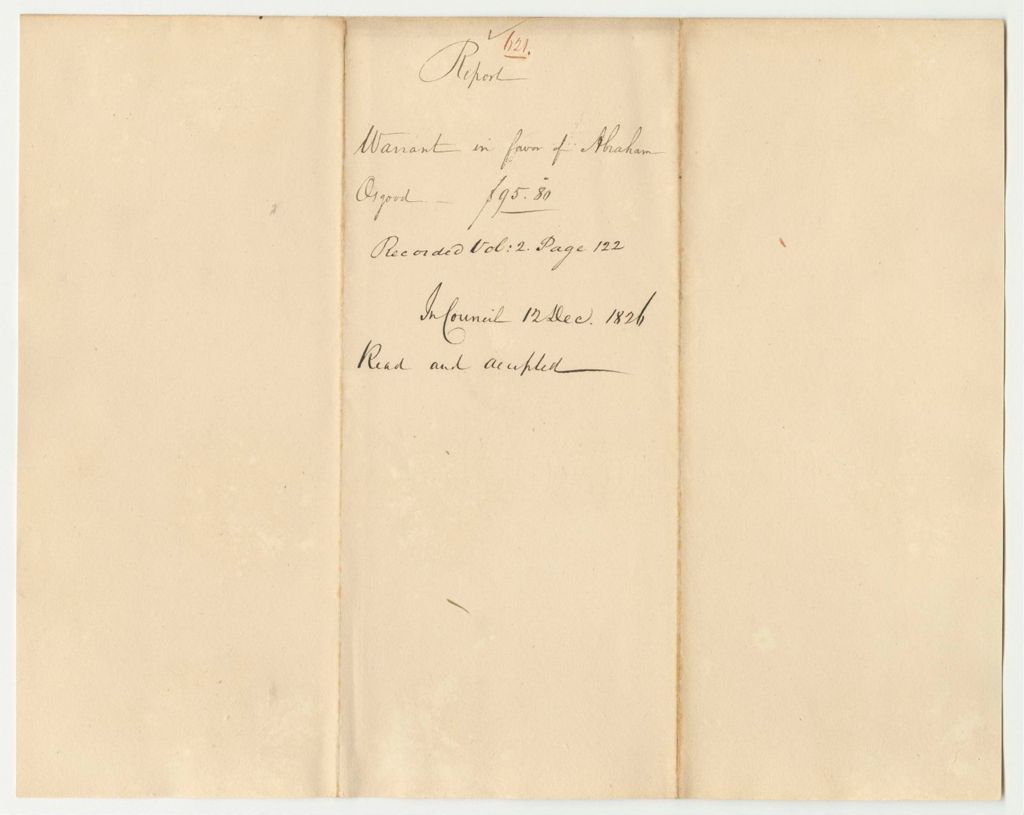 621.
Report
Warrant in favor of Abraham
Osgood — $95.80
Recorded Vol: 2. Page 122
In Council 12 Dec. 1826
Read and accepted